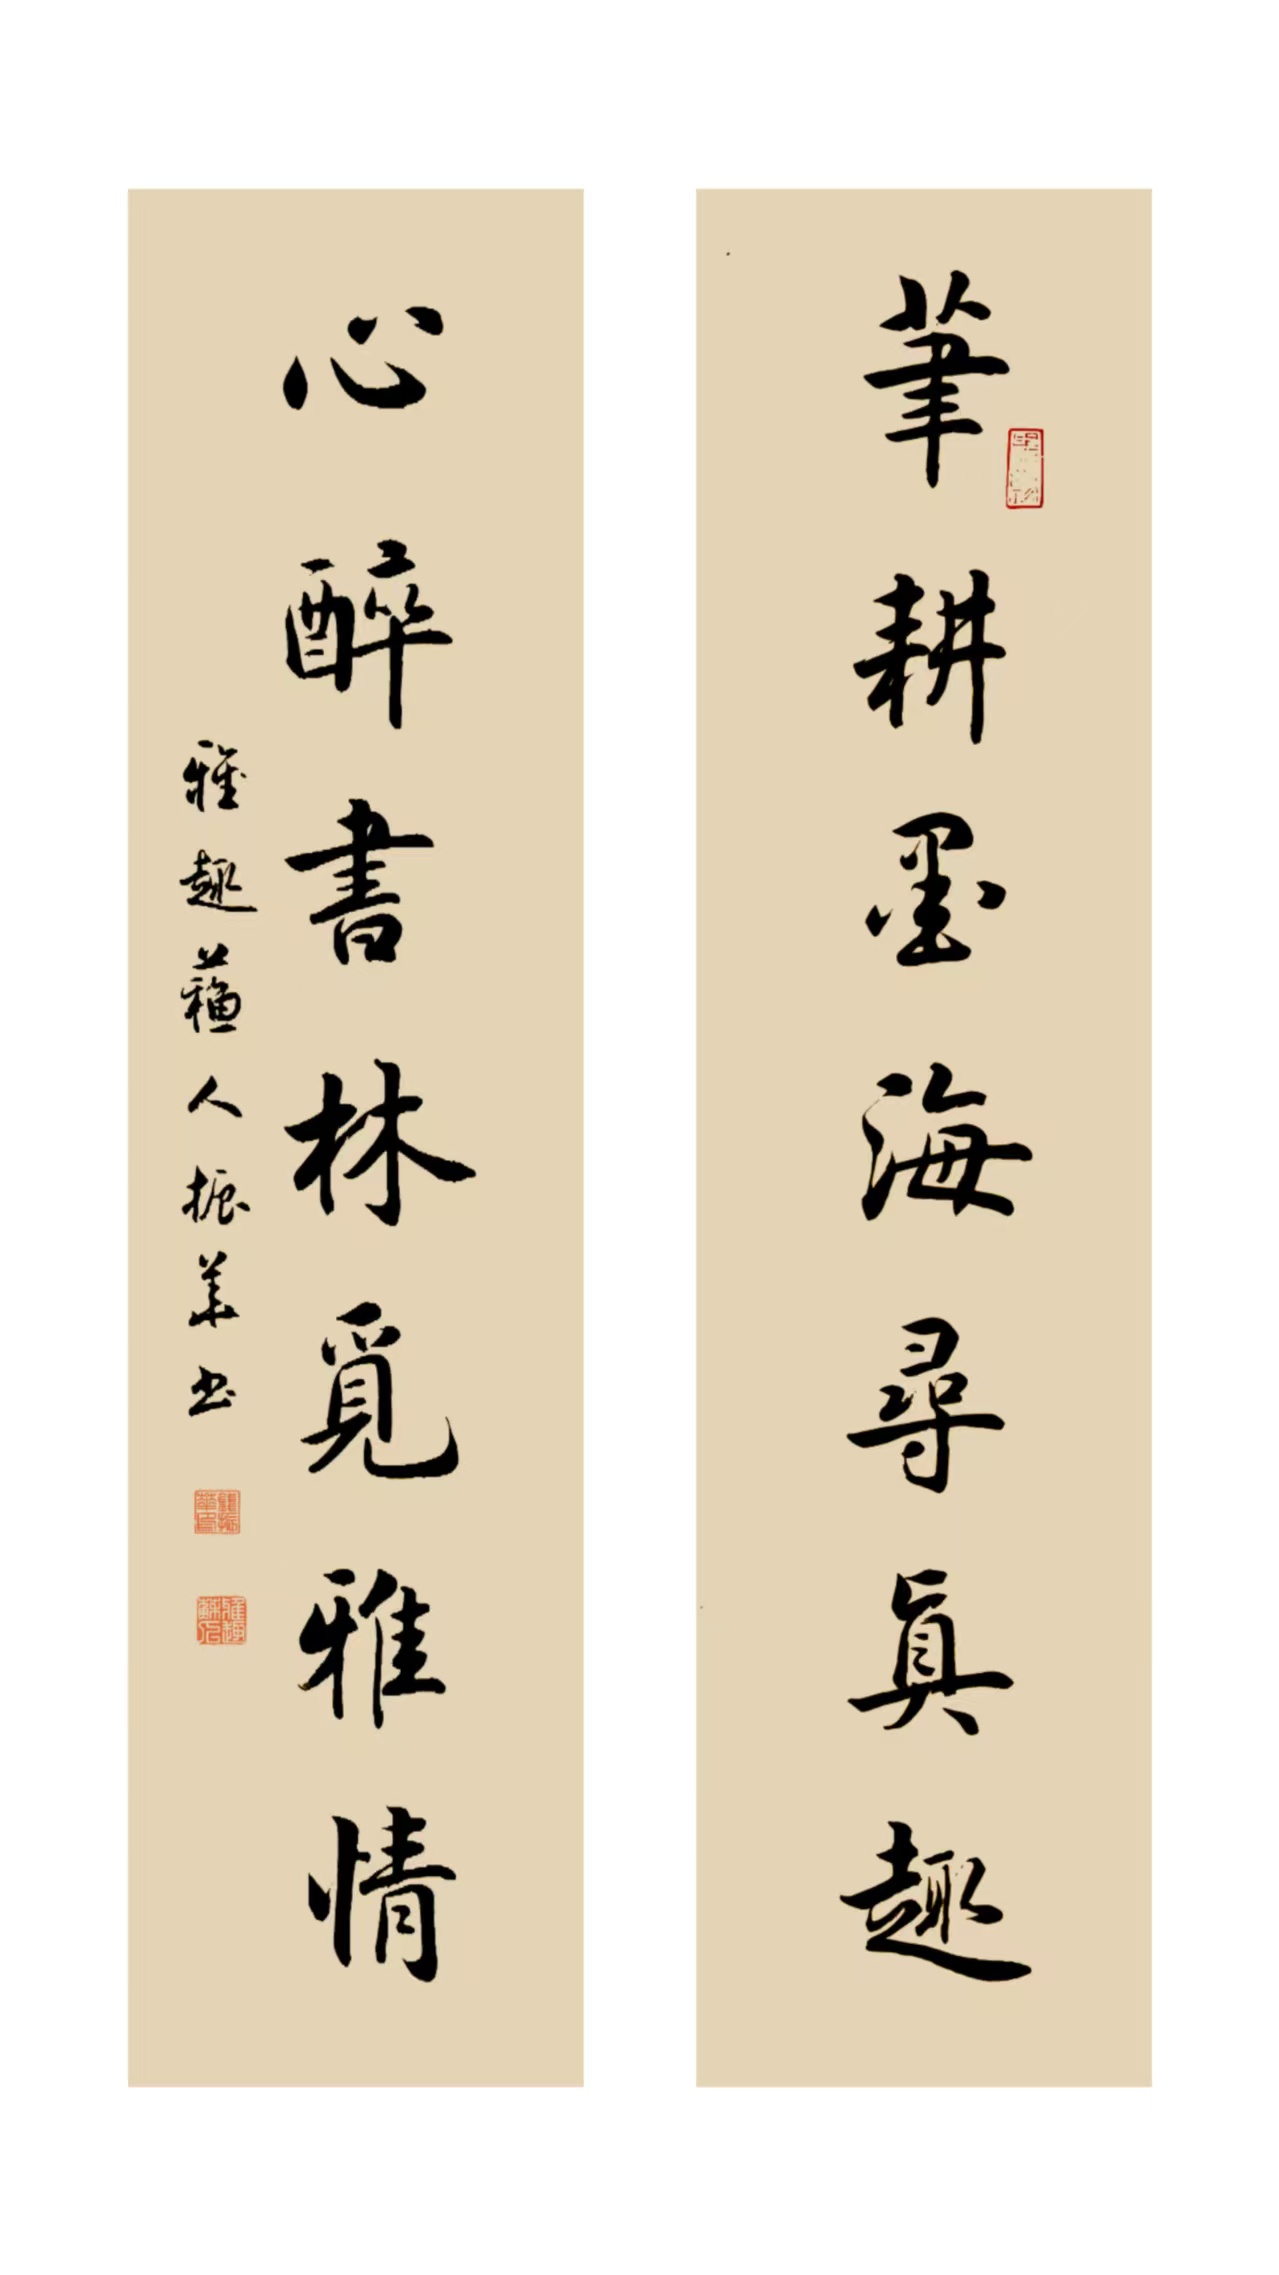 筆耕墨海尋真趣
心醉書林覓雅情
雅趣蘓人振華书